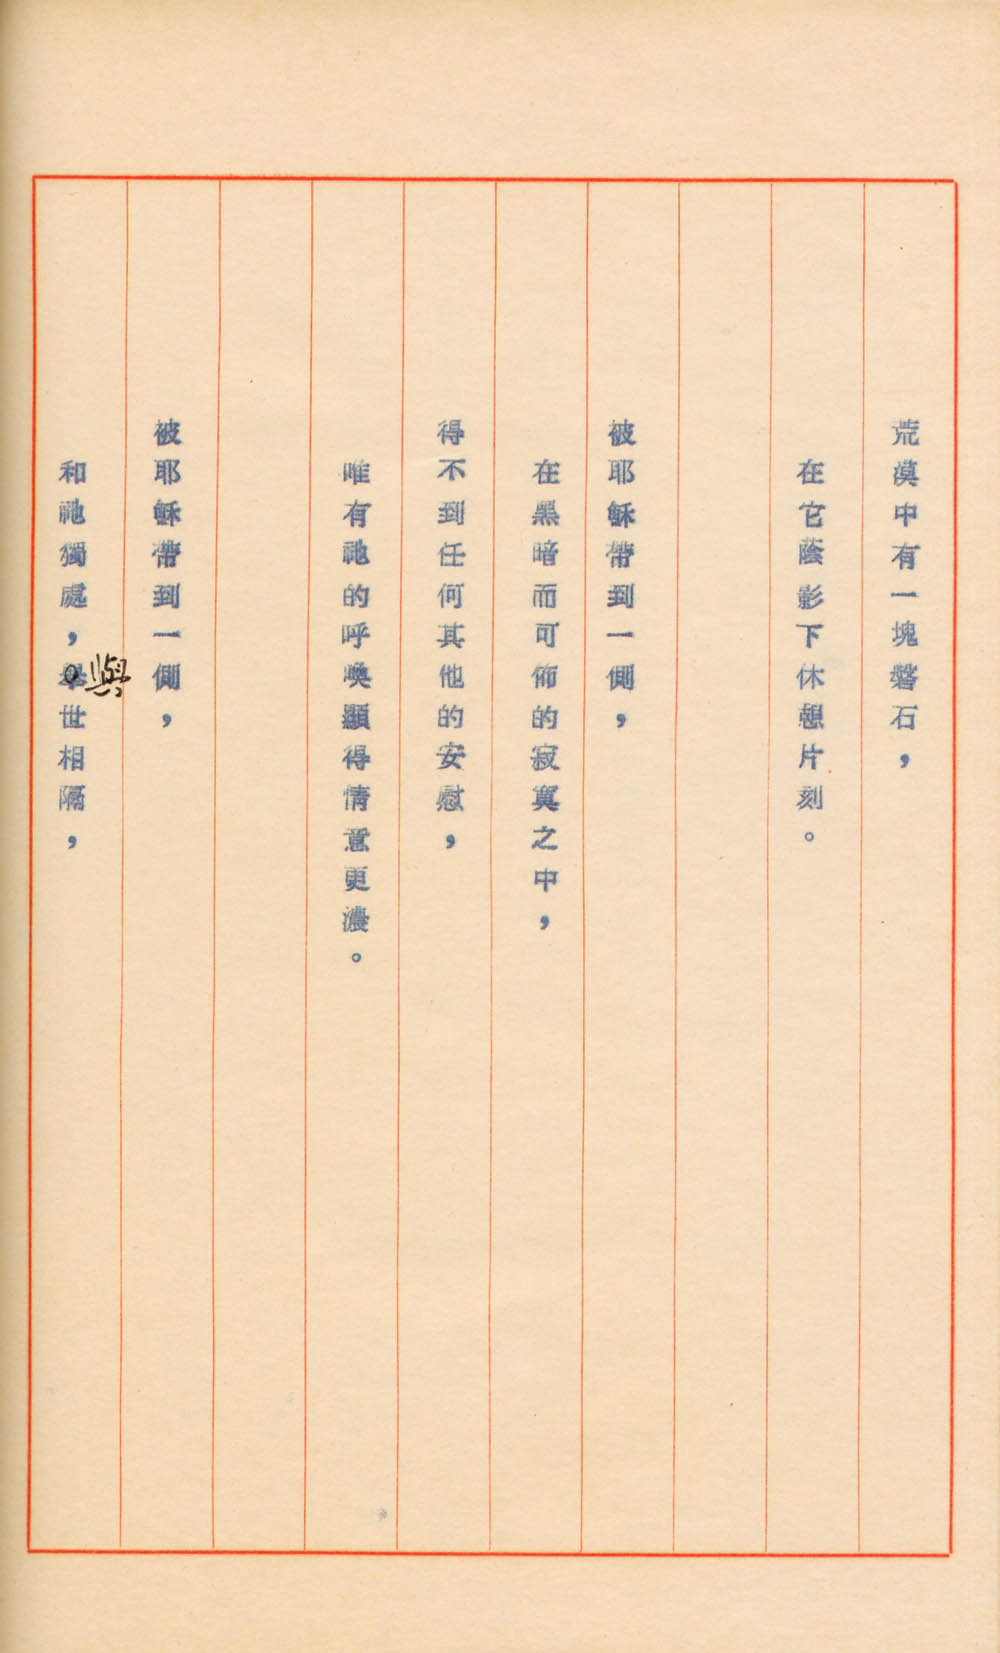 荒漠中有一塊磐石，
在它蔭影下休憩片刻。
被耶穌帶到一側，
在黑暗而可佈的寂寞之中，
得不到任何其他的安慰，
唯有祂的呼喚顯得情意更濃。
被耶穌帶到一側，
和祂獨處，舉世相隔，
與